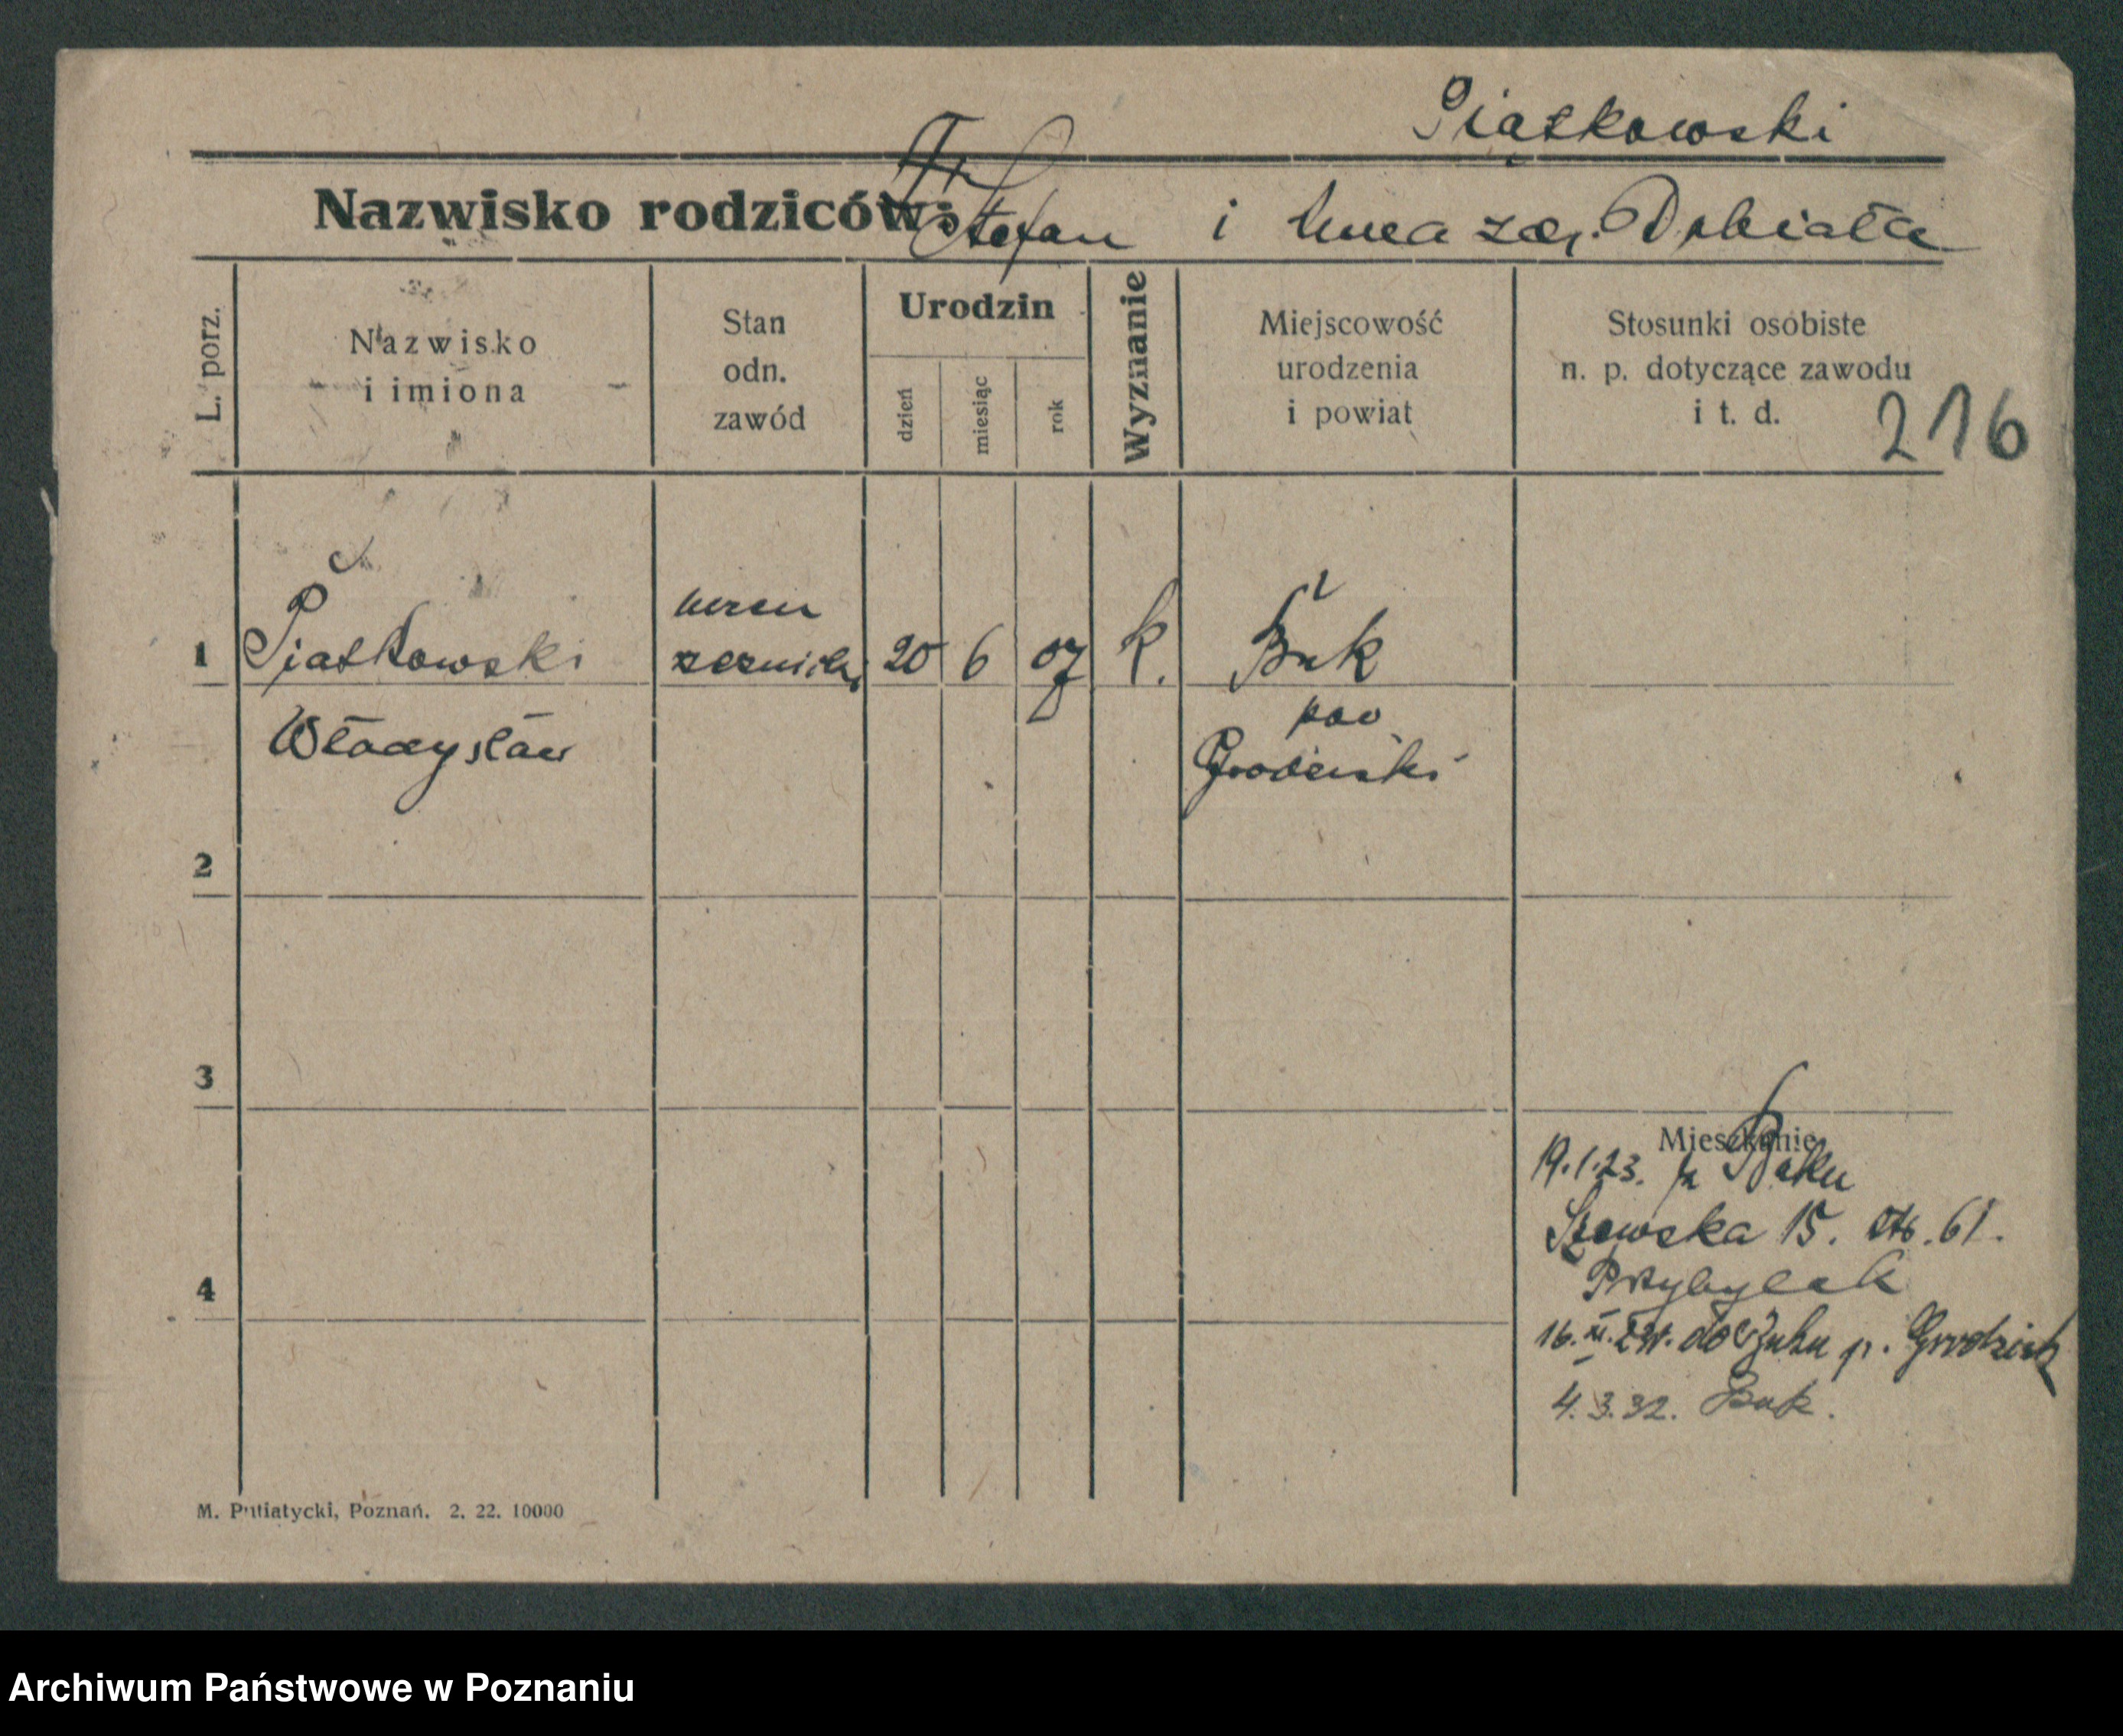 Piątkowski
Nazwisko rodziców:
Stefan i
L. porz.
Nazwisko
i imiona
Stan
odn.
zawód
Urodzin
dzień
miesiąc
rok
Wyznanie
Miejscowość
urodzenia
i powiat
Stosunki osobiste
n. p. dotyczące zawodu
i t. d.
216
1 Piatkowski 20 6 07 k. Buk
Władysław
pow
Grodziski
2
3
Mieszkanie
19.1.23. Buku
Szewska 15. 61.
Przybylak
4
16. do Buku p. Grodzisk
4.3.32. Buk.
M. Putiatycki, Poznań. 2. 22. 10000
Archiwum Państwowe w Poznaniu